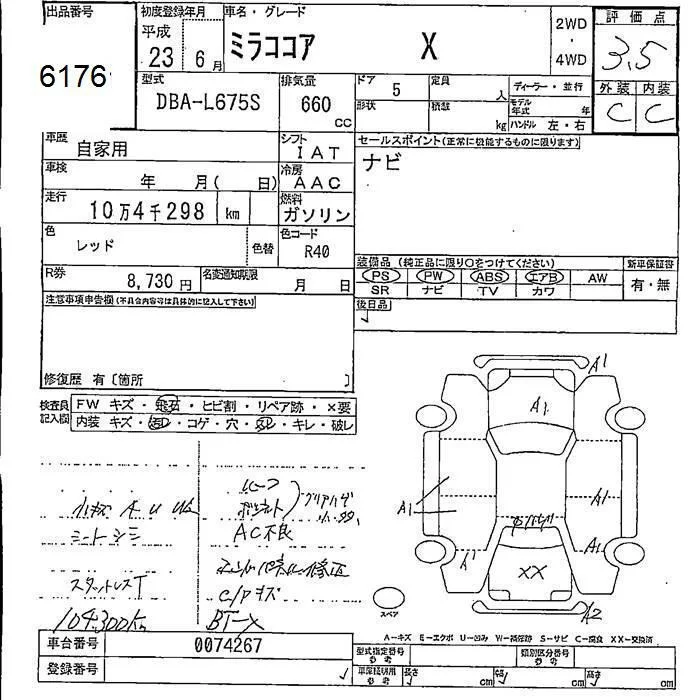 出品番号
6176
初度登録年月
平成
23 6月
車名・グレード
ミラココア X
2WD
・
4WD
評価点
3.5
外装 内装
C C
型式
DBA-L675S
排気量
660
CC
ドア 5
定員 人
形状
積載 kg
ディーラー・並行
モデル年式 年
ハンドル 左・右
車歴
自家用
シフト
IAT
セールスポイント(正常に機能するものに限ります)
ナビ
車検
年 月( 日)
冷房
AAC
走行
10万4千298 km
燃料
ガソリン
色
レッド
色替
色コード
R40
装備品 (純正品に限り○をつけてください)
新車保証書
PS PW ABS エアB AW
有・無
SR ナビ TV カワ
R券
8,730円
名変通知期限
月 日
後日品
注意事項申告欄(不具合内容等は具体的に記入して下さい)
修復歴 有〔箇所 〕
検査員記入欄
FW キズ・飛石・ヒビ割・リペア跡・×要
内装 キズ・汚れ・コゲ・穴・スレ・キレ・破レ
小キズ A U
シートシミ
AC不良
スタットレスT
C/Pキズ
104,300km
A1
A1
A1
A1
A1
A1
XX
A2
スペア
A−キズ E−エクボ U−凹み W−補修跡 S−サビ C−腐食 XX−交換済
車台番号
0074267
登録番号
型式指定番号
参考
類別区分番号
参考
車庫証明用
参考
長さ cm
幅 cm
高さ cm